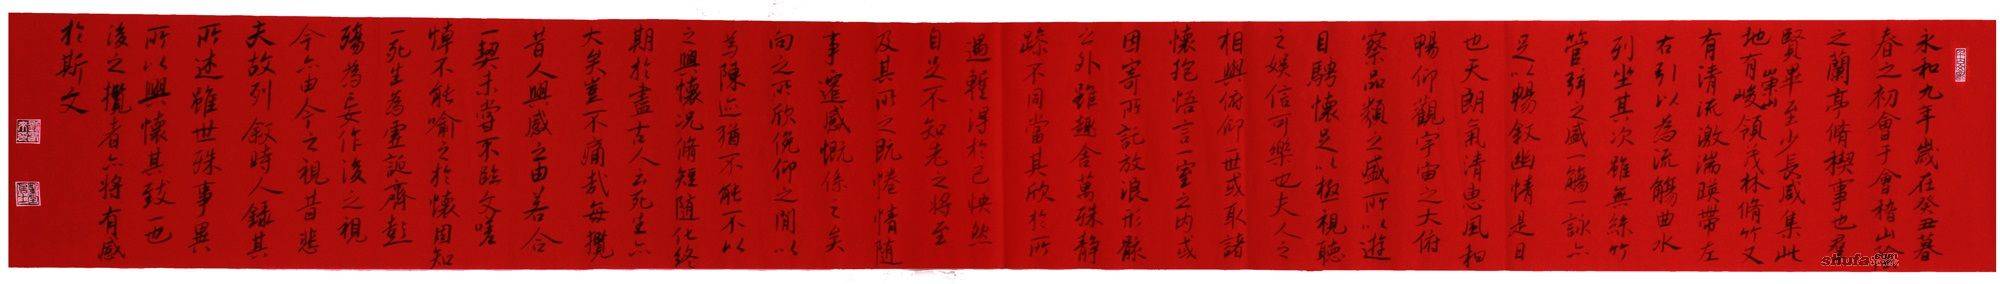 永和九年歲在癸丑暮
春之初會于會稽山陰
之蘭亭脩稧事也羣
賢畢至少長咸集此
地有崇山峻領茂林脩竹又
有清流激湍暎帶左
右引以為流觴曲水
列坐其次雖無絲竹
管弦之盛一觴一詠亦
足以暢敘幽情是日
也天朗氣清惠風和
暢仰觀宇宙之大俯
察品類之盛所以遊
目騁懷足以極視聽
之娛信可樂也夫人之
相與俯仰一世或取諸
懷抱悟言一室之內或
因寄所託放浪形骸
之外雖趣舍萬殊靜
躁不同當其欣於所
遇輕得於己怏然
自足不知老之將至
及其所之既惓情隨
事遷感慨係之矣
向之所欣俛仰之間以
為陳迹猶不能不以
之興懷況脩短隨化終
期於盡古人云死生亦
大矣豈不痛哉每攬
昔人興感之由若合
一契未嘗不臨文嗟
悼不能喻之於懷固知
一死生為虛誕齊彭
殤為妄作後之視
今亦由今之視昔悲
夫故列敘時人錄其
所述雖世殊事異
所以興懷其致一也
後之攬者亦將有感
於斯文
shufa